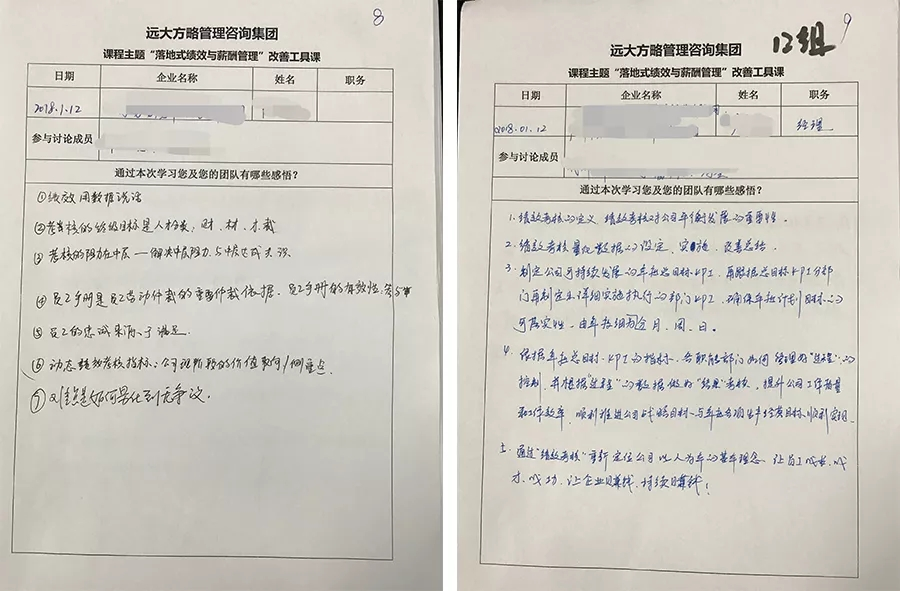 8
远大方略管理咨询集团
课程主题“落地式绩效与薪酬管理”改善工具课
日期 企业名称 姓名 职务
2018.1.12
参与讨论成员
通过本次学习您及您的团队有哪些感悟？
①绩效用数据说话
②考核的终级目标是人材类：财、材、才、裁
③考核的阻力在中层——解决中层阻力，与中层达成共识
④员工手册是员工劳动仲裁的重要仲裁依据，员工手册的有效性：
⑤员工的忠诚来源于满足
⑥动态绩效考核指标：公司现阶段的价值取向/侧重点
⑦如何量化到无争议.
9
12组
远大方略管理咨询集团
课程主题“落地式绩效与薪酬管理”改善工具课
日期 企业名称 姓名 职务
2018.01.12 经理
参与讨论成员
通过本次学习您及您的团队有哪些感悟？
1. 绩效考核的定义，绩效考核对公司平衡发展的重要性。
2. 绩效考核量化数据的设定、实施、改善总结.
3. 制定公司可持续发展的年经总目标KPI，再根据总目标KPI分部
门再制定出详细实施执行的部门KPI，确保年经计划目标的
可落实性，由年经细分月、周、日。
4. 依据年经总目标、KPI的指标，各职能部门如何管理好“过程”的
控制，并根据“过程”的数据做好“结果”考核，提升公司工作质量
和工作效率，顺利推进公司战略目标与年经各项生产经营目标顺利实现
5. 通过“绩效考核”重新定位公司以人为本的基本理念，让员工成长、成
才、成功，让企业赚钱，持续赚钱！